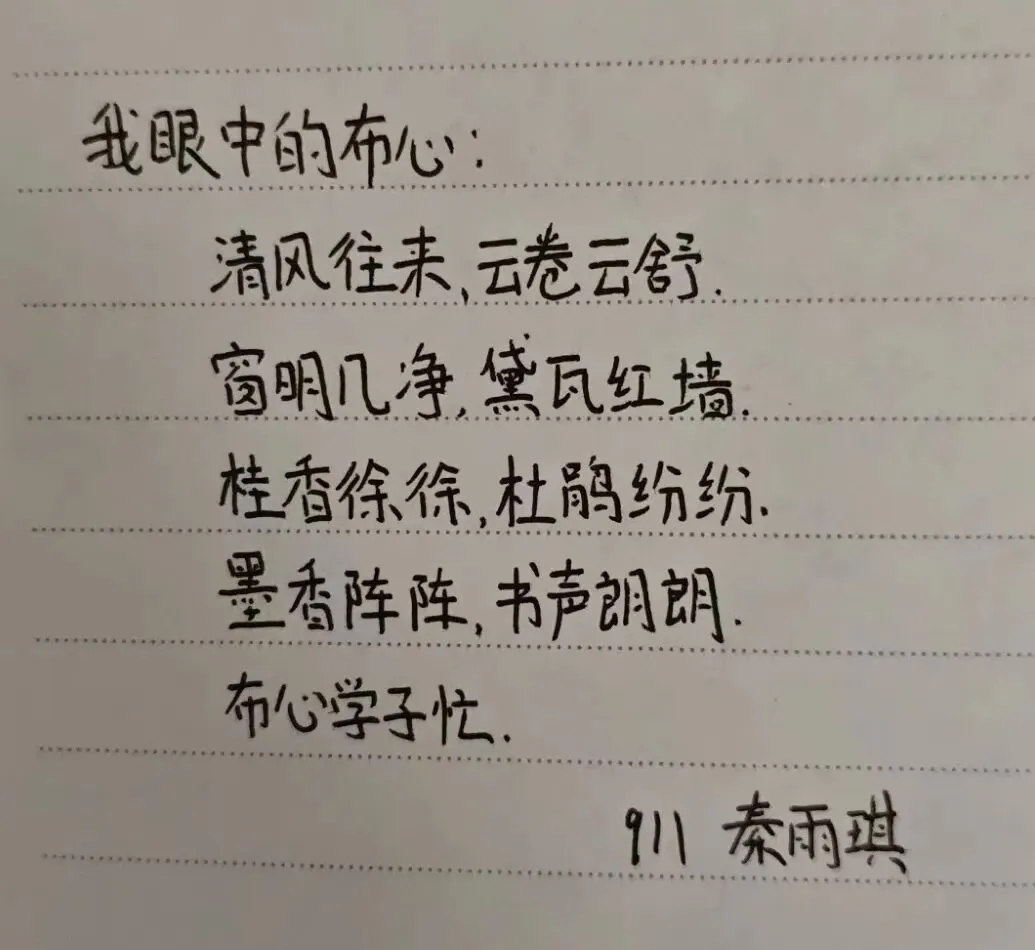 我眼中的布心:
清风往来,云卷云舒.
窗明几净,黛瓦红墙.
桂香徐徐,杜鹃纷纷.
墨香阵阵,书声朗朗.
布心学子忙.
911 秦雨琪